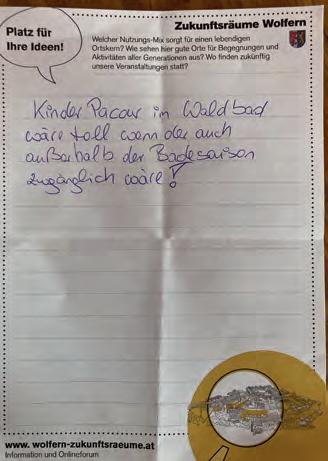 Platz für
Ihre Ideen!
Zukunftsräume Wolfern
Welcher Nutzungs-Mix sorgt für einen lebendigen
Ortskern? Wie sehen hier gute Orte für Begegnungen und
Aktivitäten aller Generationen aus? Wo finden zukünftig
unsere Veranstaltungen statt?
Kinder Pacour im Waldbad
wäre toll wenn der auch
außerhalb der Badesaison
zugänglich wäre!
www.wolfern-zukunftsraeume.at
Information und Onlineforum